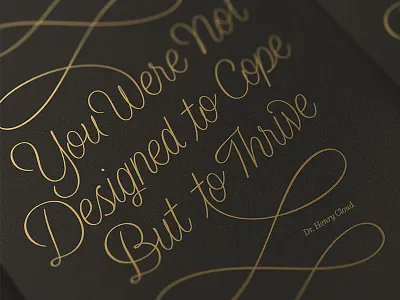 You Were Not
Designed to Cope
But to Thrive
Dr. Henry Cloud